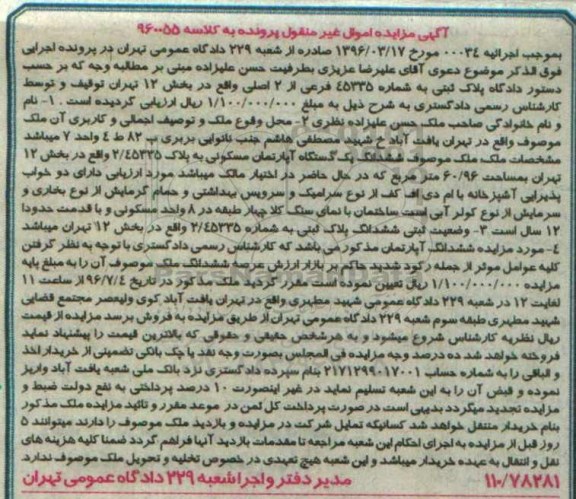 آگهی مزایده اموال غیر منقول پرونده به کلاسه ۹۶۰۰۵۵
بموجب اجرائیه ۰۰۰۳۴ مورخ ۱۳۹۶/۰۳/۱۷ صادره از شعبه ۲۲۹ دادگاه عمومی تهران در پرونده اجرایی
فوق الذکر موضوع دعوی آقای علیرضا عزیزی بطرفیت حسن علیزاده مبنی بر مطالبه وجه که بر حسب
دستور دادگاه پلاک ثبتی به شماره ۴۵۳۳۵ فرعی از ۲ اصلی واقع در بخش ۱۲ تهران توقیف و توسط
کارشناس رسمی دادگستری به شرح ذیل به مبلغ ۱/۱۰۰/۰۰۰/۰۰۰ ریال ارزیابی گردیده است . ۱- نام
و نام خانوادگی صاحب ملک حسن علیزاده نظری ۲- محل وقوع ملک و توصیف اجمالی و کاربری آن ملک
موصوف واقع در تهران یافت آباد خ شهید مصطفی هاشم جنب نانوایی بربری پ ۸۲ ط ۴ واحد ۷ میباشد
مشخصات ملک: ملک موصوف ششدانگ یک دستگاه آپارتمان مسکونی به پلاک ۲/۴۵۳۳۵ واقع در بخش ۱۲
تهران بمساحت ۶۰/۹۶ متر مربع که در حال حاضر در اختیار مالک میباشد مورد ارزیابی دارای دو خواب
پذیرایی آشپزخانه با ام دی اف کف از نوع سرامیک و سرویس بهداشتی و حمام گرمایش از نوع بخاری و
سرمایش از نوع کولر آبی است ساختمان با نمای سنگ کلا چهار طبقه در ۸ واحد مسکونی و با قدمت حدودا
۱۲ سال است ۳- وضعیت ثبتی ششدانگ پلاک ثبتی به شماره ۲/۴۵۳۳۵ واقع در بخش ۱۲ تهران میباشد
۴- مورد مزایده ششدانگ آپارتمان مذکور می باشد که کارشناس رسمی دادگستری با توجه به نظر گرفتن
کلیه عوامل موثر از جمله رکود شدید حاکم بر بازار ارزش عرصه ششدانگ ملک موصوف آن را به مبلغ پایه
مزایده ۱/۱۰۰/۰۰۰/۰۰۰ ریال تعیین نموده است مقرر گردید ملک مذکور در تاریخ ۹۶/۷/۴ از ساعت ۱۱
لغایت ۱۲ در شعبه ۲۲۹ دادگاه عمومی شهید مطهری واقع در تهران یافت آباد کوی ولیعصر مجتمع قضایی
شهید مطهری طبقه سوم شعبه ۲۲۹ دادگاه عمومی تهران از طریق مزایده به فروش برسد مزایده از قیمت
ریال نظریه کارشناس شروع میشود و به هر شخص حقیقی و حقوقی که بالاترین قیمت را پیشنهاد نماید
فروخته خواهد شد ده درصد وجه مزایده فی المجلس بصورت وجه نقد یا چک بانکی تضمینی از خریدار اخذ
و الباقی را به شماره حساب ۲۱۷۱۲۹۹۰۱۷۰۰۱ بنام سپرده دادگستری نزد بانک ملی شعبه یافت آباد واریز
نموده و قبض آن را به این شعبه تسلیم نماید در غیر اینصورت ۱۰ درصد پرداختی به نفع دولت ضبط و
مزایده تجدید میگردد بدیهی است در صورت پرداخت کل ثمن در موعد مقرر و تائید مزایده ملک مذکور
بنام خریدار منتقل خواهد شد کسانیکه تمایل شرکت در مزایده و بازدید ملک موصوف را دارند میتوانند ۵
روز قبل از مزایده به اجرای احکام این شعبه مراجعه تا مقدمات بازدید آنها فراهم گردد ضمنا کلیه هزینه های
نقل و انتقال به عهده خریدار میباشد و این شعبه هیچ تعهدی در خصوص تخلیه و تحویل ملک موصوف ندارد.
۱۱۰/۷۸۲۸۱ مدیر دفتر و اجرا شعبه ۲۲۹ دادگاه عمومی تهران